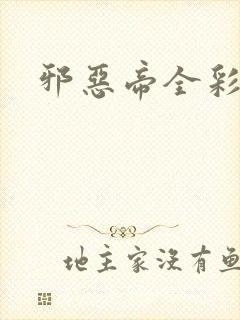 邪惡帝全彩
地主家沒有鱼